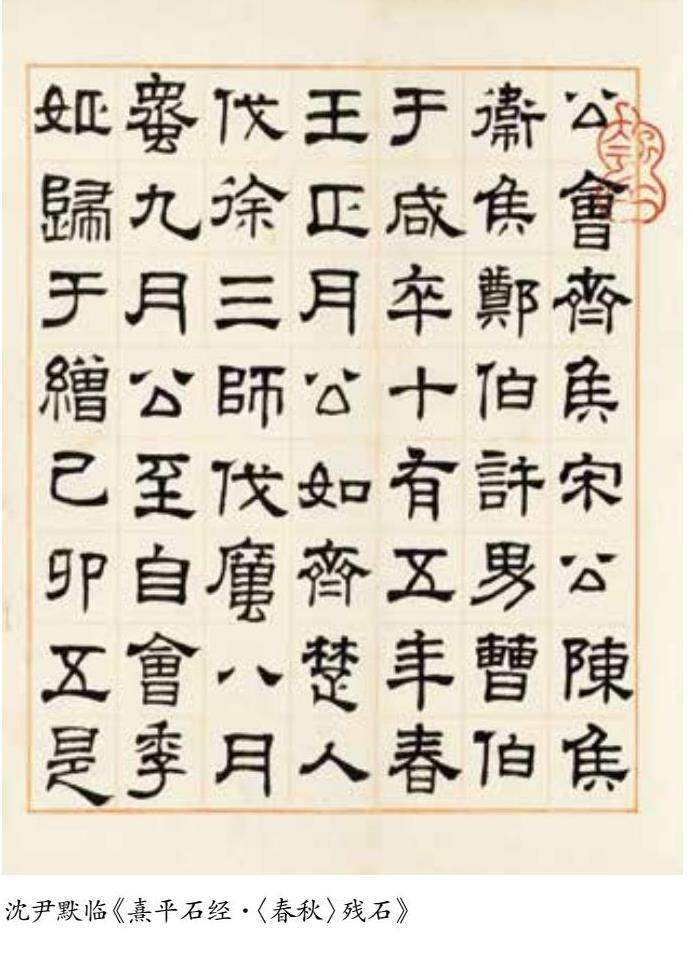 公會齊侯宋公陳侯
衛侯鄭伯許男曹伯
于咸卒十有五年春
王正月公如齊楚人
伐徐三師伐厲八月
螽九月公至自會季
姬歸于繒己卯五是
沈尹默临《熹平石经·〈春秋〉残石》